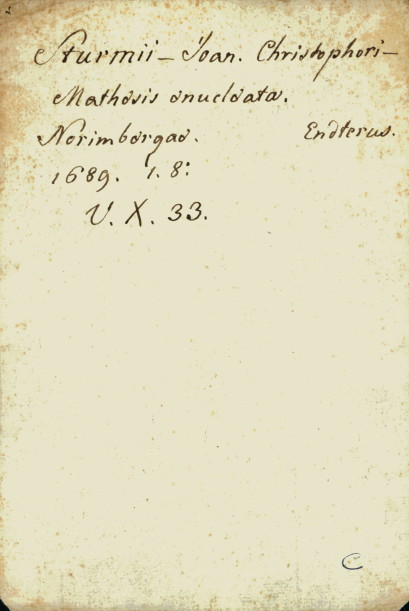 Sturmii – Joan. Christophori –
Mathesis enucleata.
Norimbergae. Endterus.
1689. 1. 8:
V. X. 33.
C